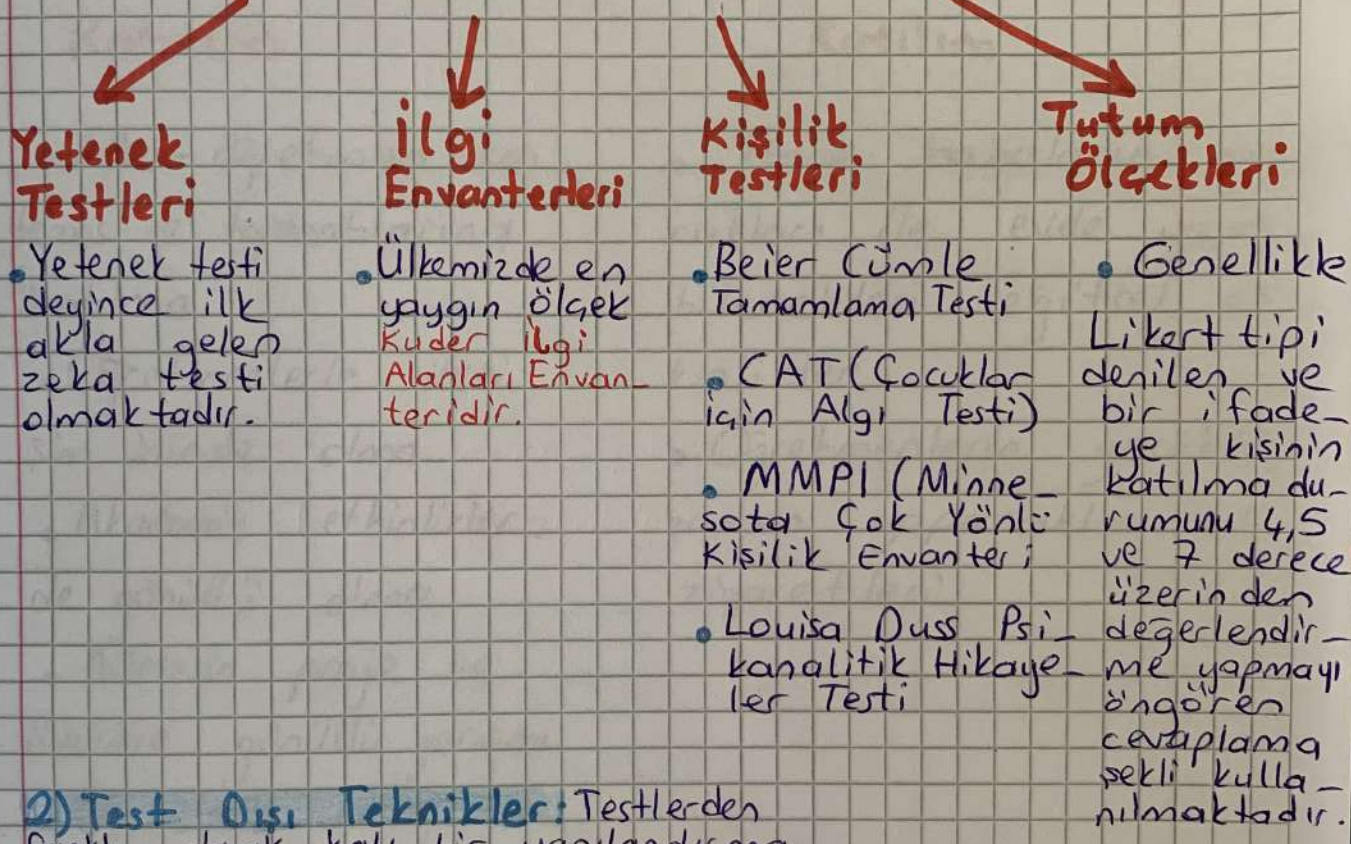 Yetenek
Testleri
• Yetenek testi
deyince ilk
akla gelen
zeka testi
olmaktadır.
İlgi
Envanterleri
• Ülkemizde en
yaygın ölçek
Kuder ilgi
Alanları Envan-
teridir.
Kişilik
Testleri
• Beier Cümle
Tamamlama Testi
• CAT (Çocuklar
için Algı Testi)
• MMPI (Minne-
sota Çok Yönlü
Kişilik Envanteri
• Louisa Duss Psi-
kanalitik Hikaye-
ler Testi
Tutum
Ölçekleri
• Genellikle
Likert tipi
denilen ve
bir ifade-
ye kişinin
katılma du-
rumunu 4,5
ve 7 derece
üzerinden
değerlendir-
me yapmayı
öngören
cevaplama
şekli kulla-
nılmaktadır.
2) Test Dışı Teknikler: Testlerden